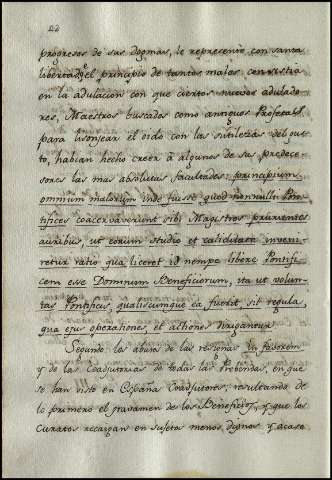 22
progresos de sus dogmas, le represento con santa
libertad, q.e el principio de tantos males consistia
en la adulacion con que ciertos nuevos adulado
res, Maestros buscados como antiguos Profetas
para lisonjear el oido con las sutilezas del gus
to, habian hecho creer à algunos de sus predece
sores las mas absolutas facultades: principium
omnium malorum inde fuisse quod nonnulli Pon
tifices coacervaverunt sibi Magistros prurientes
auribus, ut eorum studio et calliditate inveni
retur ratio qua liceret id nempe libere Pontifi
cem esse Dominum Beneficiorum, ita ut volun
tas Pontificis, qualiscumque ea fuerit, sit regula
qua ejus operationes, et actiones dirigantur
Segundo: los abusos de las resignas in favorem
y de las Coadjutorias de todas las Prebendas, en que
se han visto en España Coadjutores; resultando de
lo primero el gravamen de los Beneficios, y que los
Curatos recaigan en sujetos menos dignos, y acaso